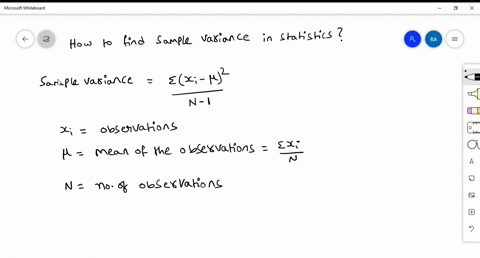 Microsoft Whiteboard
RA
How to find sample variance in statistics?
Sample variance = Σ(xi - μ)²
N-1
xi = observations
μ = mean of the observations = Σxi
N
N = no. of observations